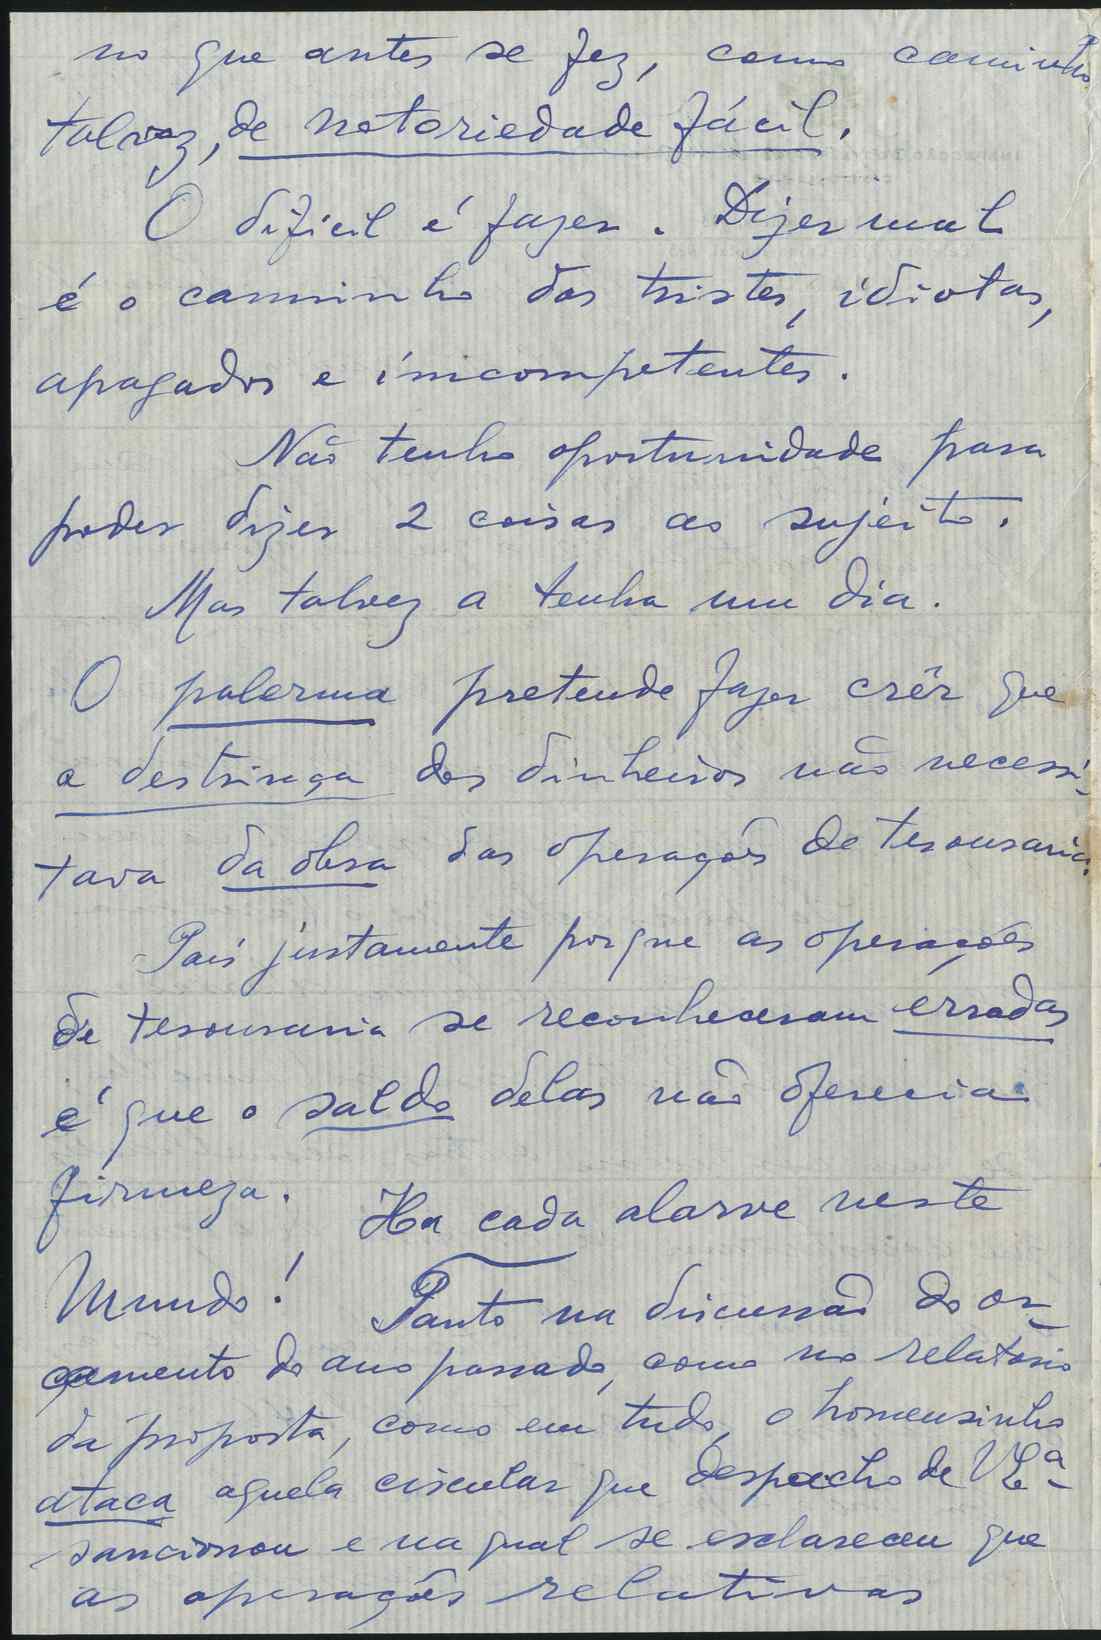 no que antes se fez, como caminho
talvez, de notoriedade fácil.
O dificil é fazer. Dizer mal
é o caminho dos tristes, idiotas,
apagados e incompetentes.
Não tenho oportunidade para
poder dizer 2 coisas ao sujeito.
Mas talvez a tenha um dia.
O palerma pretende fazer crêr que
a destrinça dos dinheiros não necessi-
tava da obra das operações de tesouraria.
Pois justamente porque as operações
de tesouraria se reconheceram erradas
é que o saldo delas não oferecia
firmeza. Ha cada alarve neste
Mundo! Tanto na discussão do or-
çamento do ano passado, como no relatorio
da proposta, como em tudo, o homensinho
ataca aquela circular que despacho de V Exª
sancionou e na qual se esclareceu que
as operações relativas